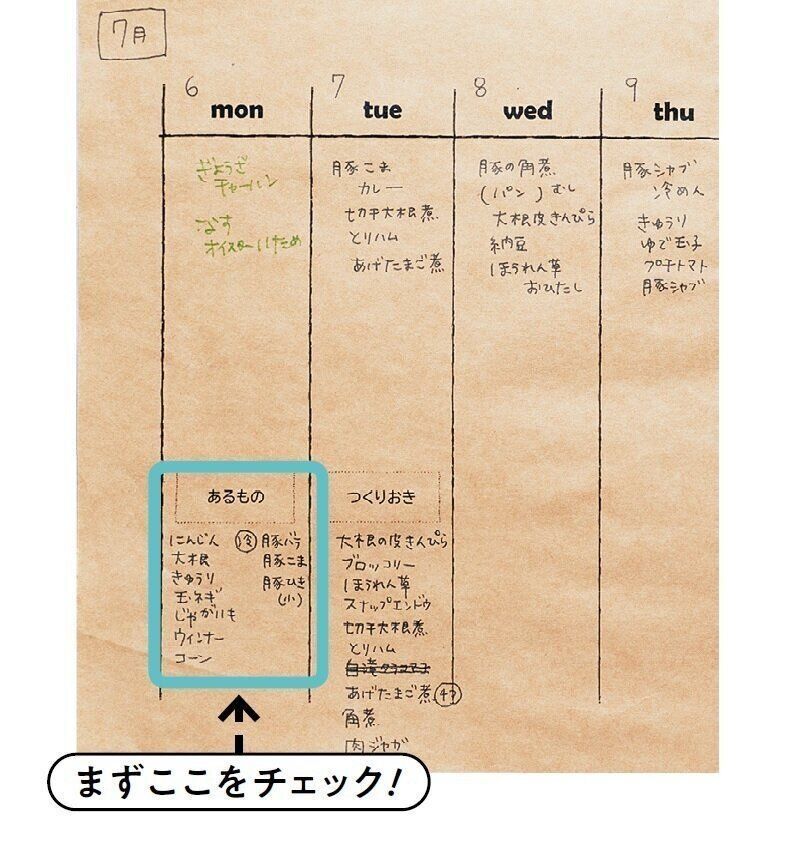 7月
6
mon
ぎょうざ
チャーハン
なす
オイスターいため
7
tue
豚こま
カレー
切干大根煮
とりハム
あげたまご煮
8
wed
豚の角煮
(パン)むし
大根皮きんぴら
納豆
ほうれん草
おひたし
9
thu
豚シャブ
冷めん
きゅうり
ゆで玉子
プチトマト
豚シャブ
あるもの
にんじん
大根
きゅうり
玉ネギ
じゃがいも
ウィンナー
コーン
冷 豚バラ
豚こま
豚ひき
(小)
つくりおき
大根の皮きんぴら
ブロッコリー
ほうれん草
スナップエンドウ
切干大根煮
とりハム
白滝タラコ
あげたまご煮
角煮
肉ジャガ
まずここをチェック!